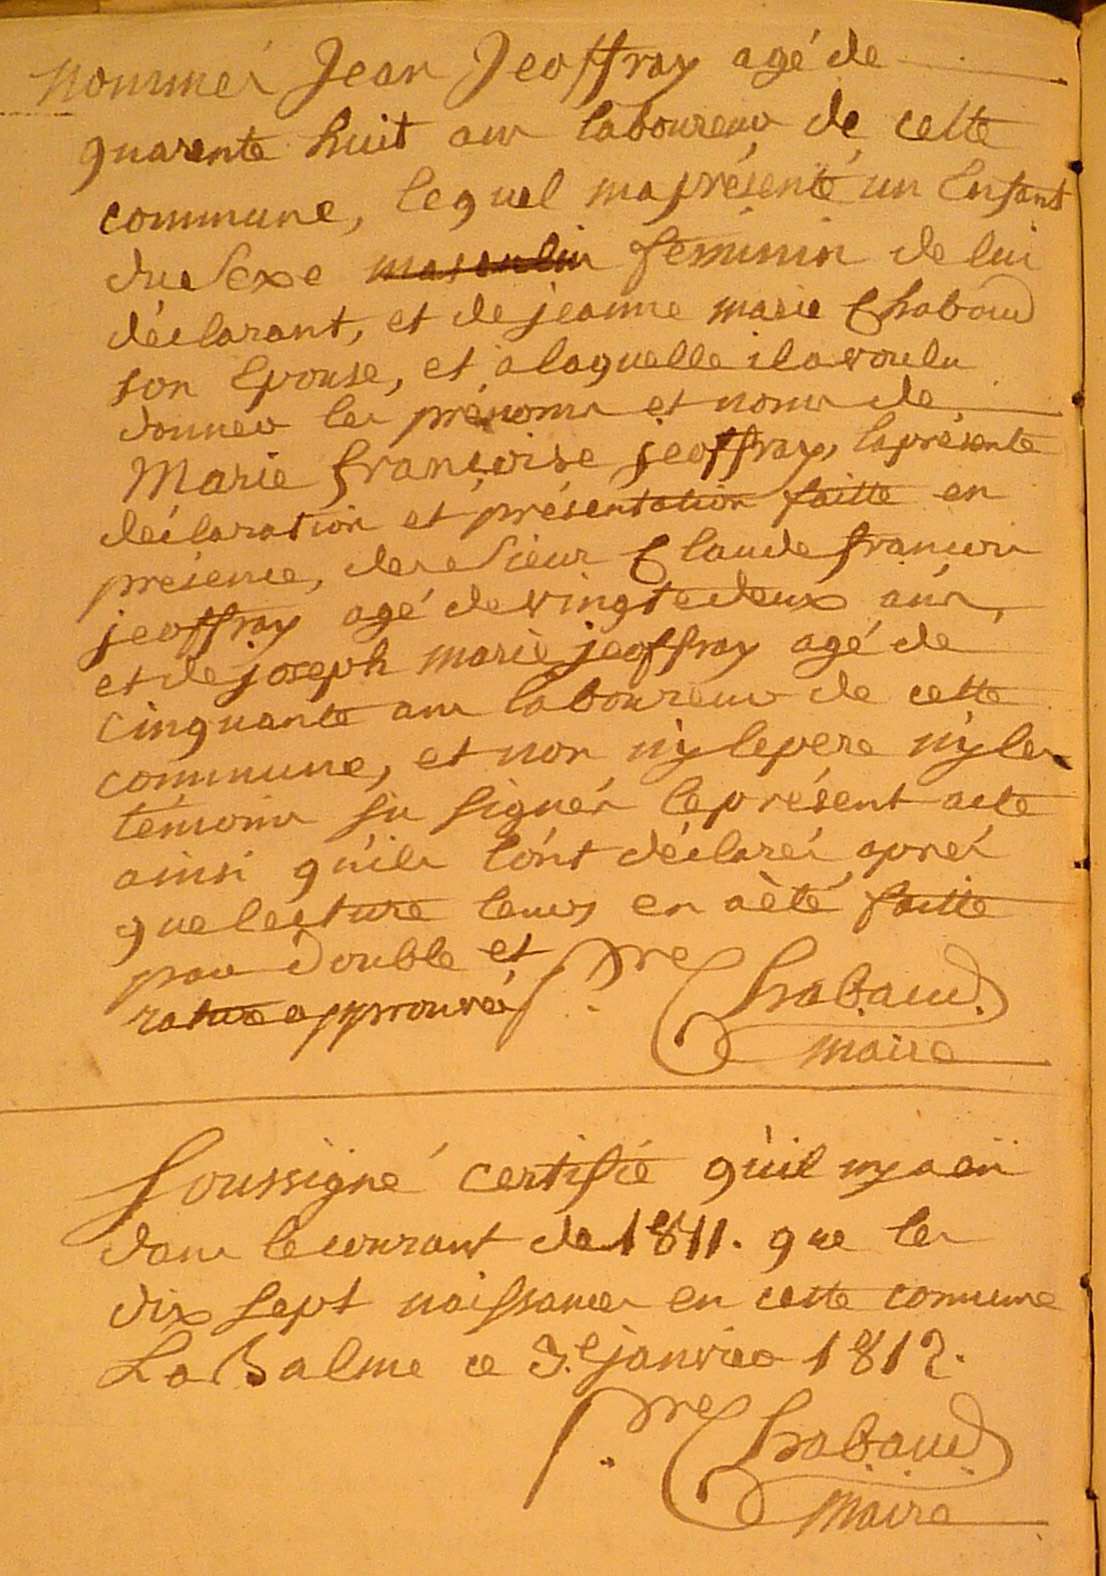 nommés Jean Jeoffray agé de
quarente huit ans laboureur de cette
commune, lequel ma présenté un Enfant
du Sexe masculin féminin de lui
déclarant, et de jeanne marie Chabaud
son Epouse, et a laquelle il a voulu
donner les prénoms et noms de
Marie françoise jeoffray, la présente
déclaration et présentation faitte en
présence, des Sieur Claude françois
jeoffray agé de vingtedeux ans,
et de joseph marie jeoffray agé de
cinquante ans laboureur de cette
commune, et non n'y le pere n'y les
témoins su signér le présent acte
ainsi qu'ils lont déclarés, aprés
que lecture leurs en a été faitte
par double et
rature approuvés Pre Chabaud
maire
Soussigné certifié qu'il ny a eü
dans le courant de 1811. que les
dix sept naissances en cette commune
La Balme ce 3.e janvier 1812.
Pre Chabaud
Maire